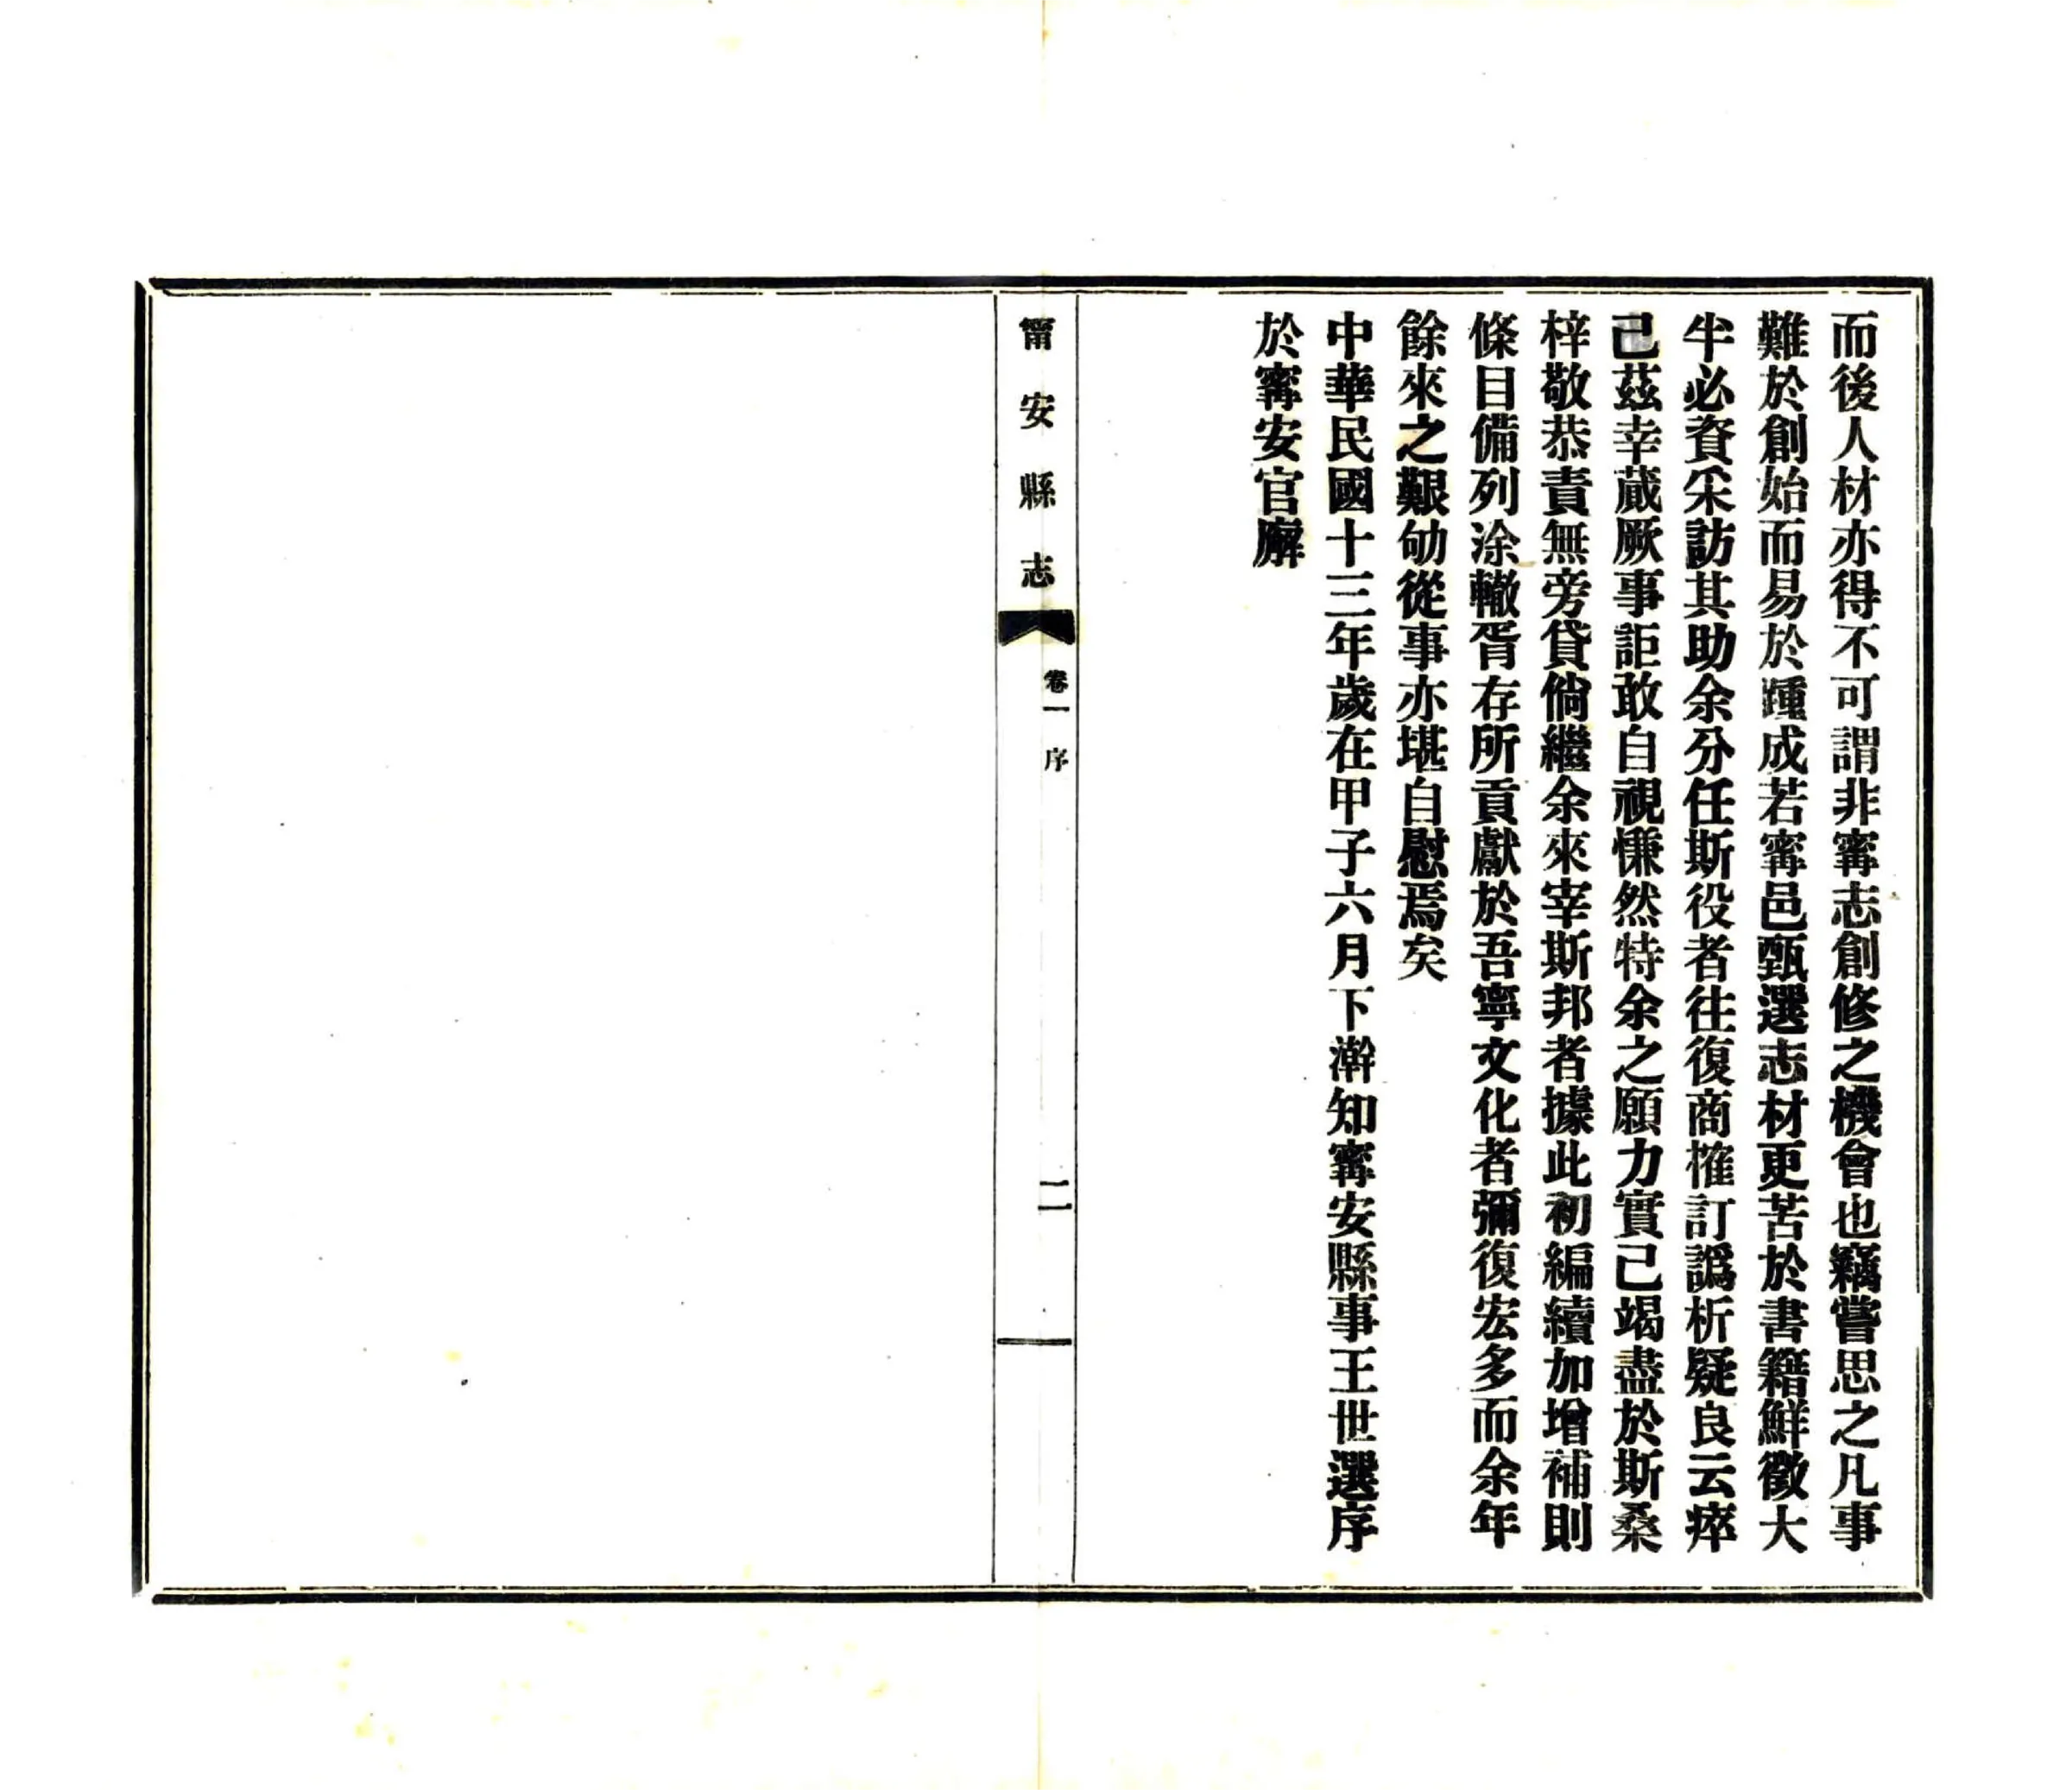 而後人材亦得不可謂非寗志創修之機會也竊嘗思之凡事
難於創始而易於踵成若寗邑甄選志材更苦於書籍鮮徵大
半必資采訪其助余分任斯役者往復商榷訂譌析疑良云瘁
己茲幸蕆厥事詎敢自視慊然特余之願力實己竭盡於斯桑
梓敬恭責無旁貸倘繼余來宰斯邦者據此初編續加增補則
條目備列涂轍胥存所貢獻於吾寧文化者彌復宏多而余年
餘來之艱劬從事亦堪自慰焉矣
中華民國十三年歲在甲子六月下澣知寗安縣事王世選序
於寗安官廨
甯安縣志
卷一 序
二